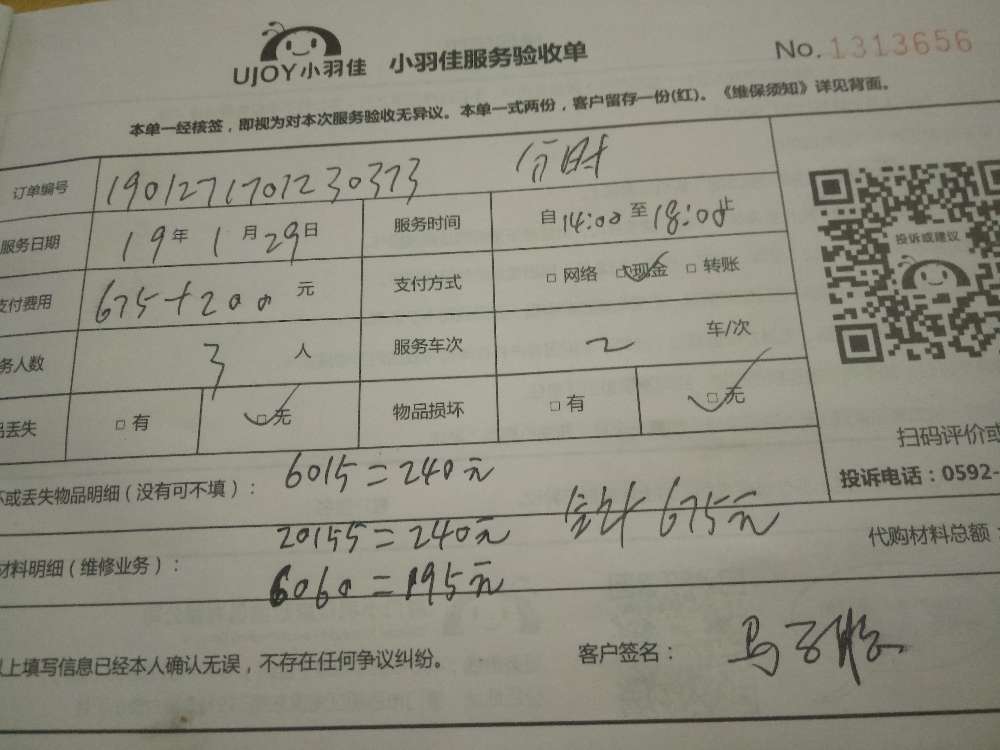 UJOY小羽佳 小羽佳服务验收单 No.1313656
本单一经核签，即视为对本次服务验收无异议。本单一式两份，客户留存一份(红)。《维保须知》详见背面。
订单编号 1901271701230373
服务日期 19年1月29日 服务时间 自14:00至18:00止
支付费用 675+200元 支付方式 □网络 □现金 □转账
务人数 3人 服务车次 2 车/次
品丢失 □有 □无 物品损坏 □有 □无
投诉或建议
扫码评价或
投诉电话：0592-
坏或丢失物品明细（没有可不填）： 6015=240元
20155=240元 合计675元
材料明细（维修业务）： 代购材料总额：
6060=195元
以上填写信息已经本人确认无误，不存在任何争议纠纷。 客户签名：